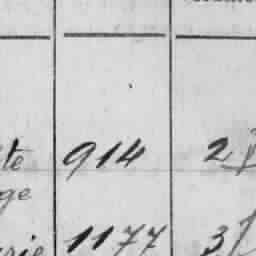 te 914 2
ge
rie 1177 3